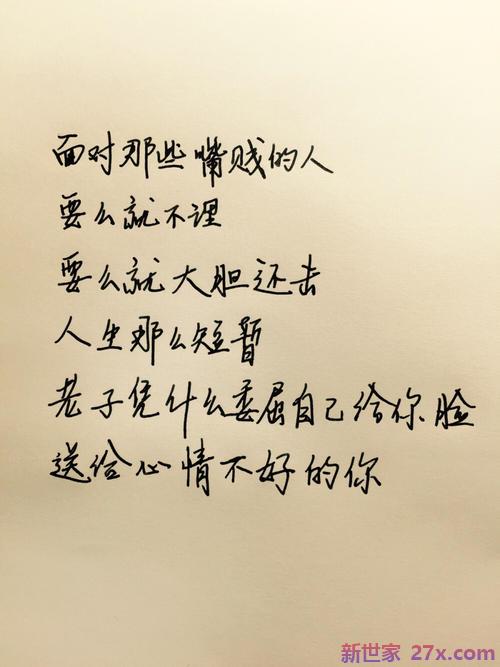 面对那些嘴贱的人
要么就不理
要么就大胆还击
人生那么短暂
老子凭什么委屈自己给你脸
送给心情不好的你
新世家 27x.com